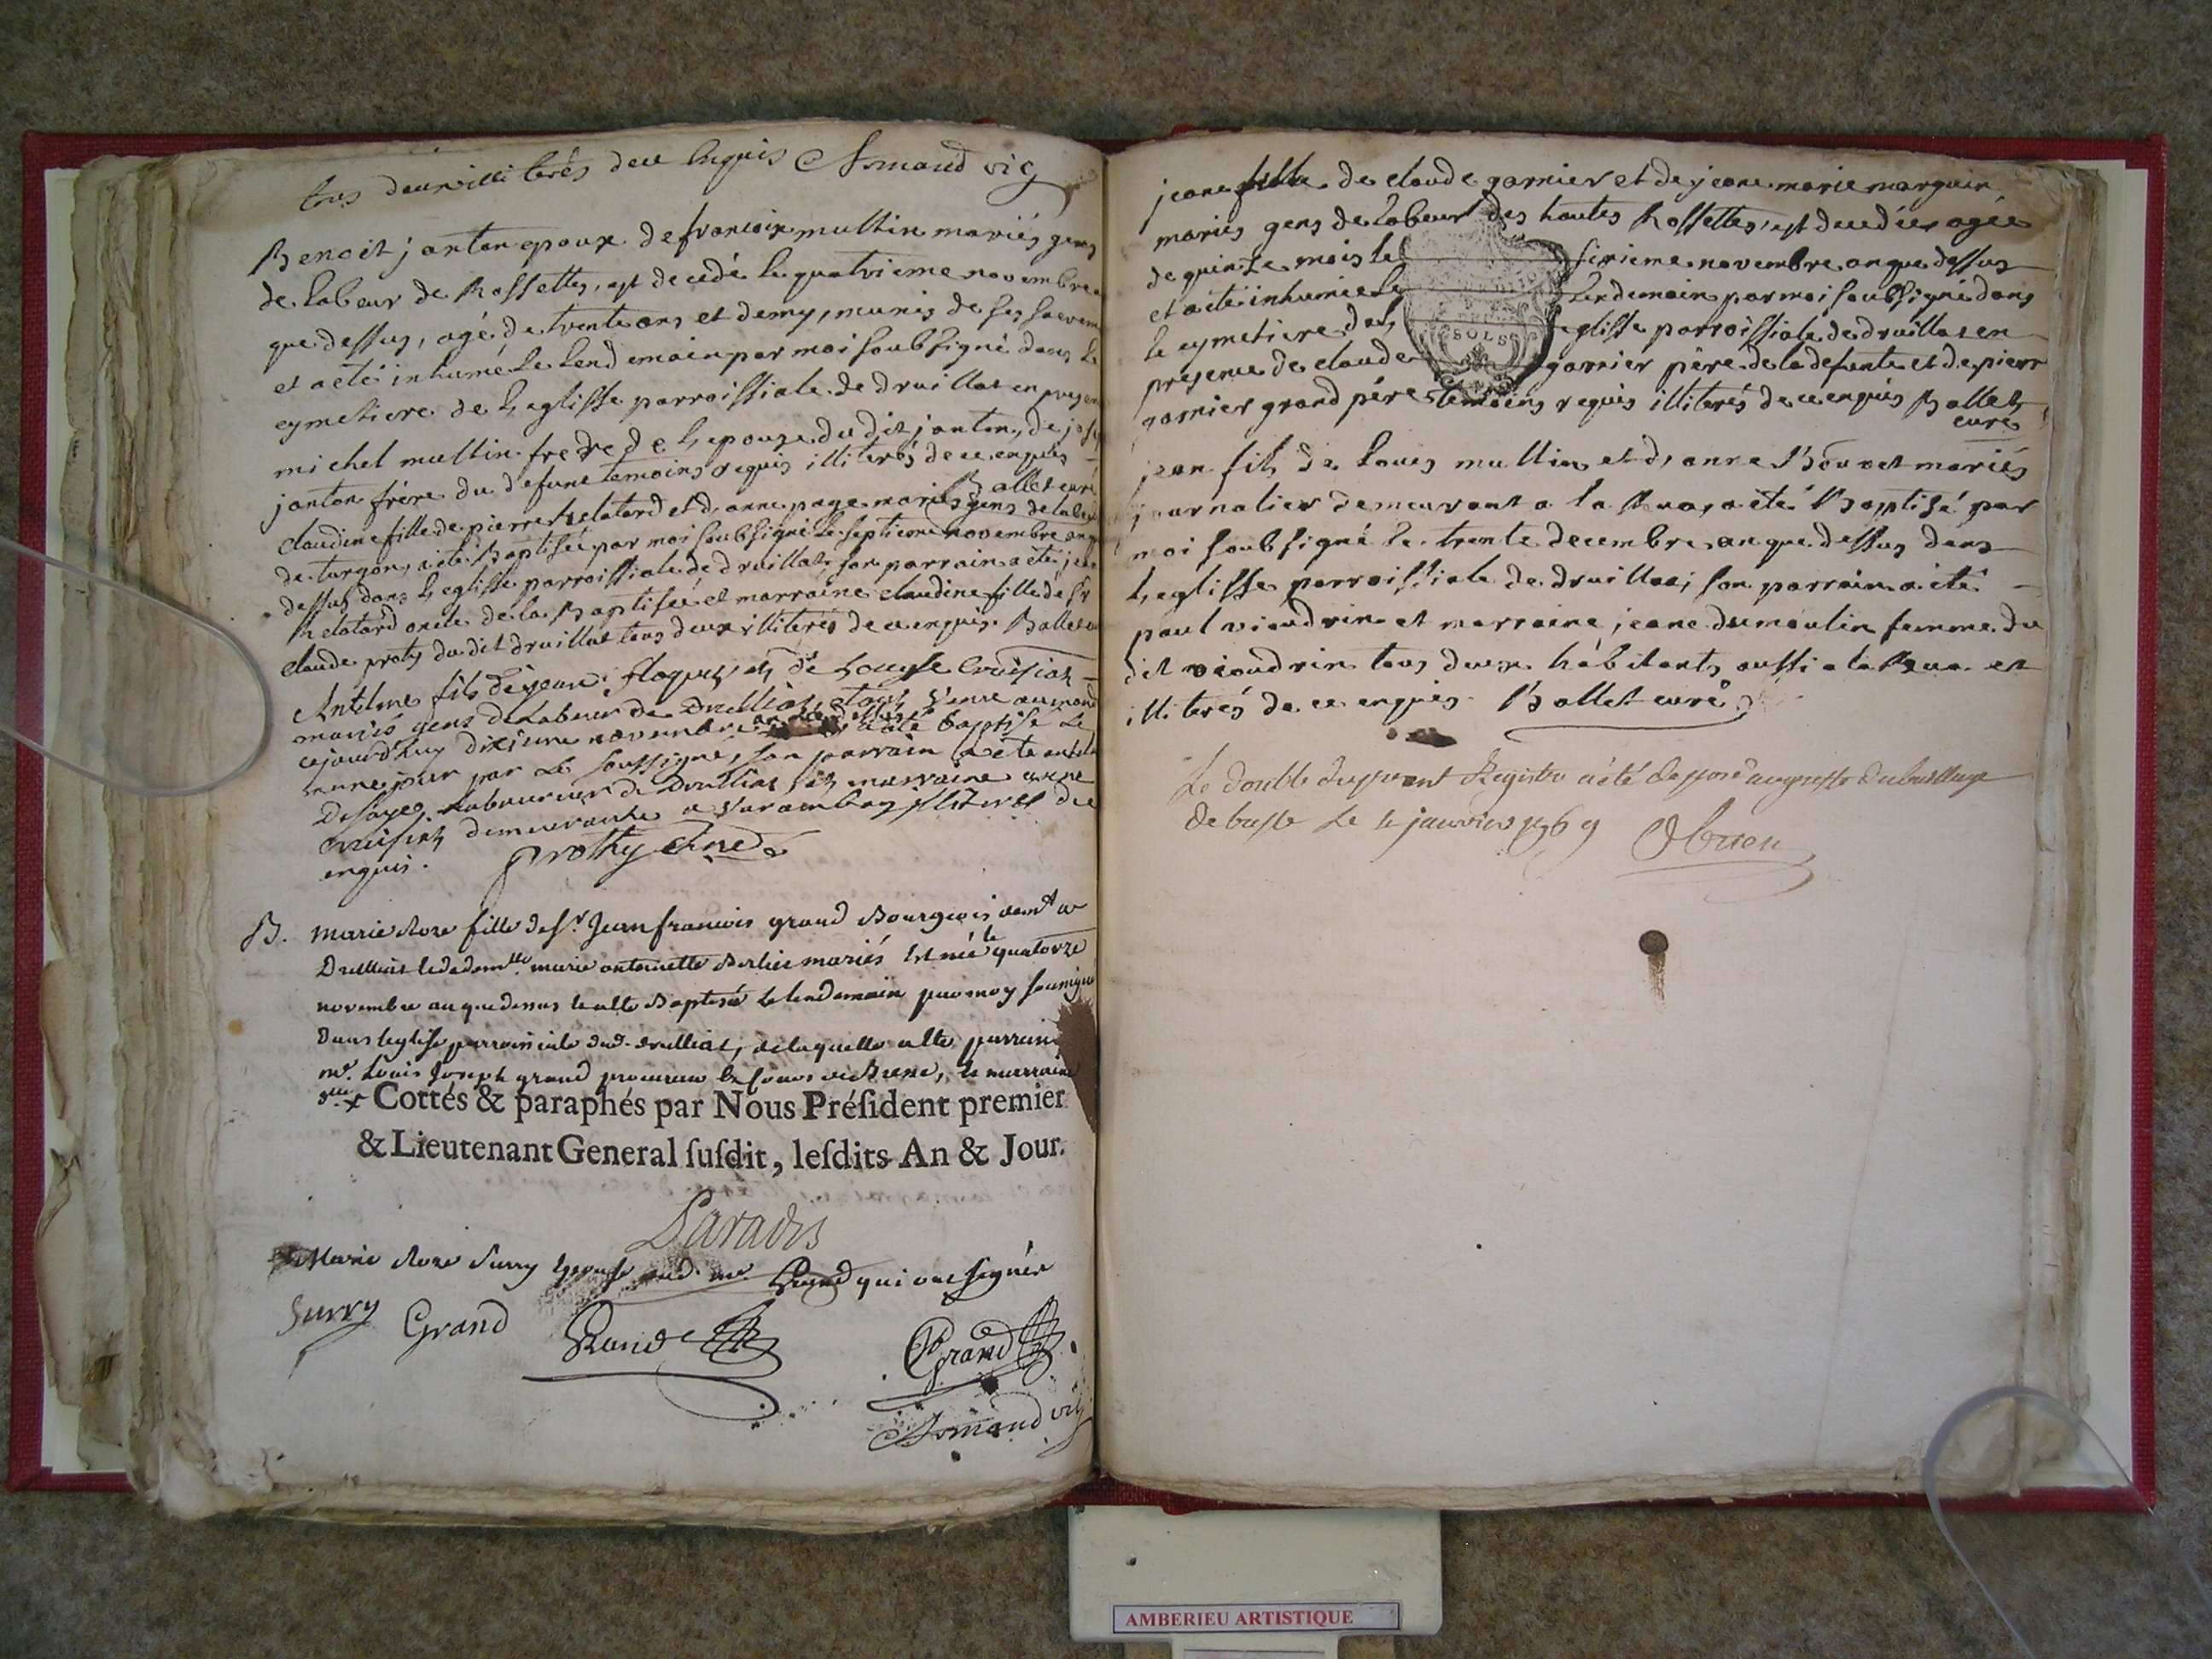 tous deux illiterés de ce enquis Armand vic
Benoit janton epoux de francoise multin mariés gens
de labeur de Rossettes, est decedé le quatrieme novembre
que dessus, agé de trente ans et demy, munis de ses sacrem
et a eté inhumé le lendemain par moi soubsigné dans le
cymetiere de l'eglisse parroissiale de druillat en presen
michel multin frere de l'epouze du dit janton, de jose
janton frére du defunt temoins requis illiterés de ce enquis
Ballet curé
claudine fille de pierre Retatard et d'anne page mariés gens de labeur
de turgon, a eté Baptisée par moi soubsigné le septieme novembre an q
dessus dans l'eglisse parroissiale de druillat, son parrain a eté jea
Retatard oncle de la Baptisée et marraine claudine fille de
claude proty du dit druillat tous deux illiterés de ce enquis. Ballet cu
Antelme fils de et de Louyse Croisiat
mariés gens de Labeur de Druillat, etant venu au mond
cejourd'huy dixieme novembre an que dessus a eté baptisé le
mme jour par le soussigné, son parrain a eté antel
Desaye Laboureur de Druillat et marraine anne
demeurante a Varambon illiterés de
enquis. Prothy curé
B. Marie Roze fille de Sr. Jean francois grand Bourgeois demt a
Druillat et de demlle marie antoinette Berlie mariés est née le quatorze
novembre an que dessus et a eté Baptisée le lendemain par moy soussigné
dans l'eglise parroissiale dud. druillat, de laquelle a eté parrain
mr. Louis Joseph grand procureur es cours de Bresse, et marraine
Cottés & paraphés par Nous Préſident premier
& Lieutenant General ſuſdit, leſdits An & Jour.
Paradis
Marie Roze Surry epouse dud. mr Grand qui ont signés
Surry Grand Grand Grand
Armand vic
jeane fille de claude garnier et de jeane marie marguin
mariés gens de labeur des hautes Rossettes, est decedée agée
de quinze mois le sixieme novembre an que dessus
et a eté inhumée le lendemain par moi soubsigné dans
le cymetiere de l'eglisse parroissiale de druillat en
SOLS
presence de claude garnier pére de la defunte et de pierre
garnier grand pére temoins requis illiterés de ce enquis Ballet
curé
jean fils de Louis multin et d'anne Bouvet mariés
journalier demeurant a la Rua, a eté Baptisé par
moi soubsigné le trente decembre an que dessus dans
l'eglisse parroissiale de druillat, son parrain a eté
paul vioudrin et marraine jeane dumoulin femme du
dit vioudrin tous deux hâbitants aussi a la Rua et
illiterés de ce enquis Ballet curé
Le double du present Registre a été deposé au greffe du bailliage
de bresse le janvier 1769
AMBERIEU ARTISTIQUE